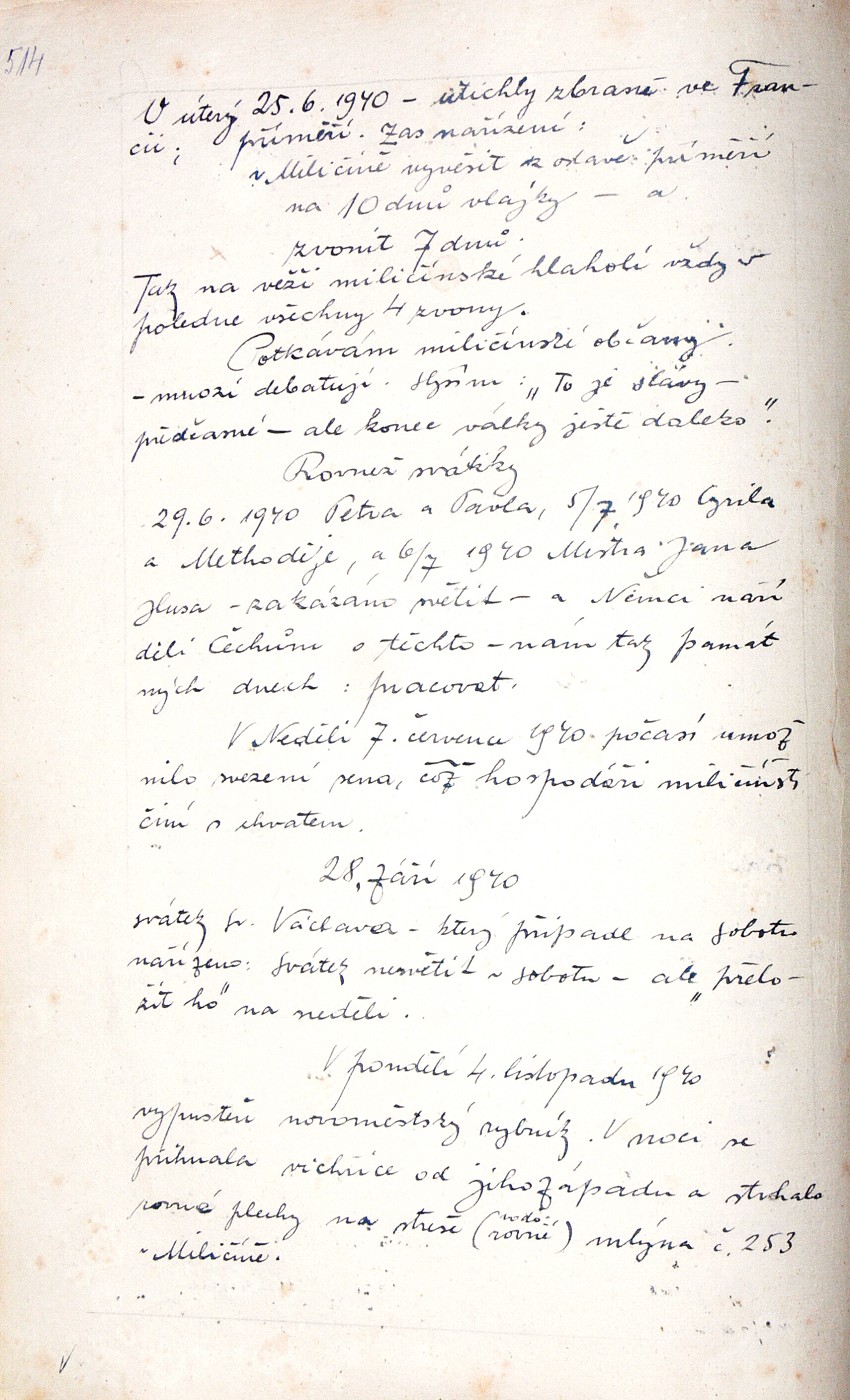 514
V úterý 25.6.1940 – utichly zbraně ve Fran-
cii; příměří. Zas nařízení:
v Miličíně vyvěsit k oslavě příměří
na 10 dnů vlajky – a
zvonit 7 dnů.
Tak na věži miličínské hlaholí vždy v
poledne všechny 4 zvony.
Potkávám miličínské občany.
– mnozí debatují. Slyším: „To je slávy –
předčasné – ale konec války ještě daleko".
Rovněž svátky
29.6. 1940 Petra a Pavla, 5/7 1940 Cyrila
a Methoděje, a 6/7 1940 Mistra Jana
Husa – zakázáno světit – a Němci naří
dili Čechům o těchto – nám tak památ
ných dnech: pracovat.
V Neděli 7. července 1940 počasí umož
nilo svezení sena, což hospodáři miličínští
činí s chvatem.
28. září 1940
svátek sv. Václava – který připadl na sobotu
nařízeno: svátek nesvětit v sobotu – ale „přelo-
žit ho" na neděli.
V pondělí 4. listopadu 1940
vypuštěn novoměstský rybník. V noci se
přihnala vichřice od jihozápadu a strhala
rovné plechy na střeše (vodo: rovné) mlýna č. 253
v Miličíně.